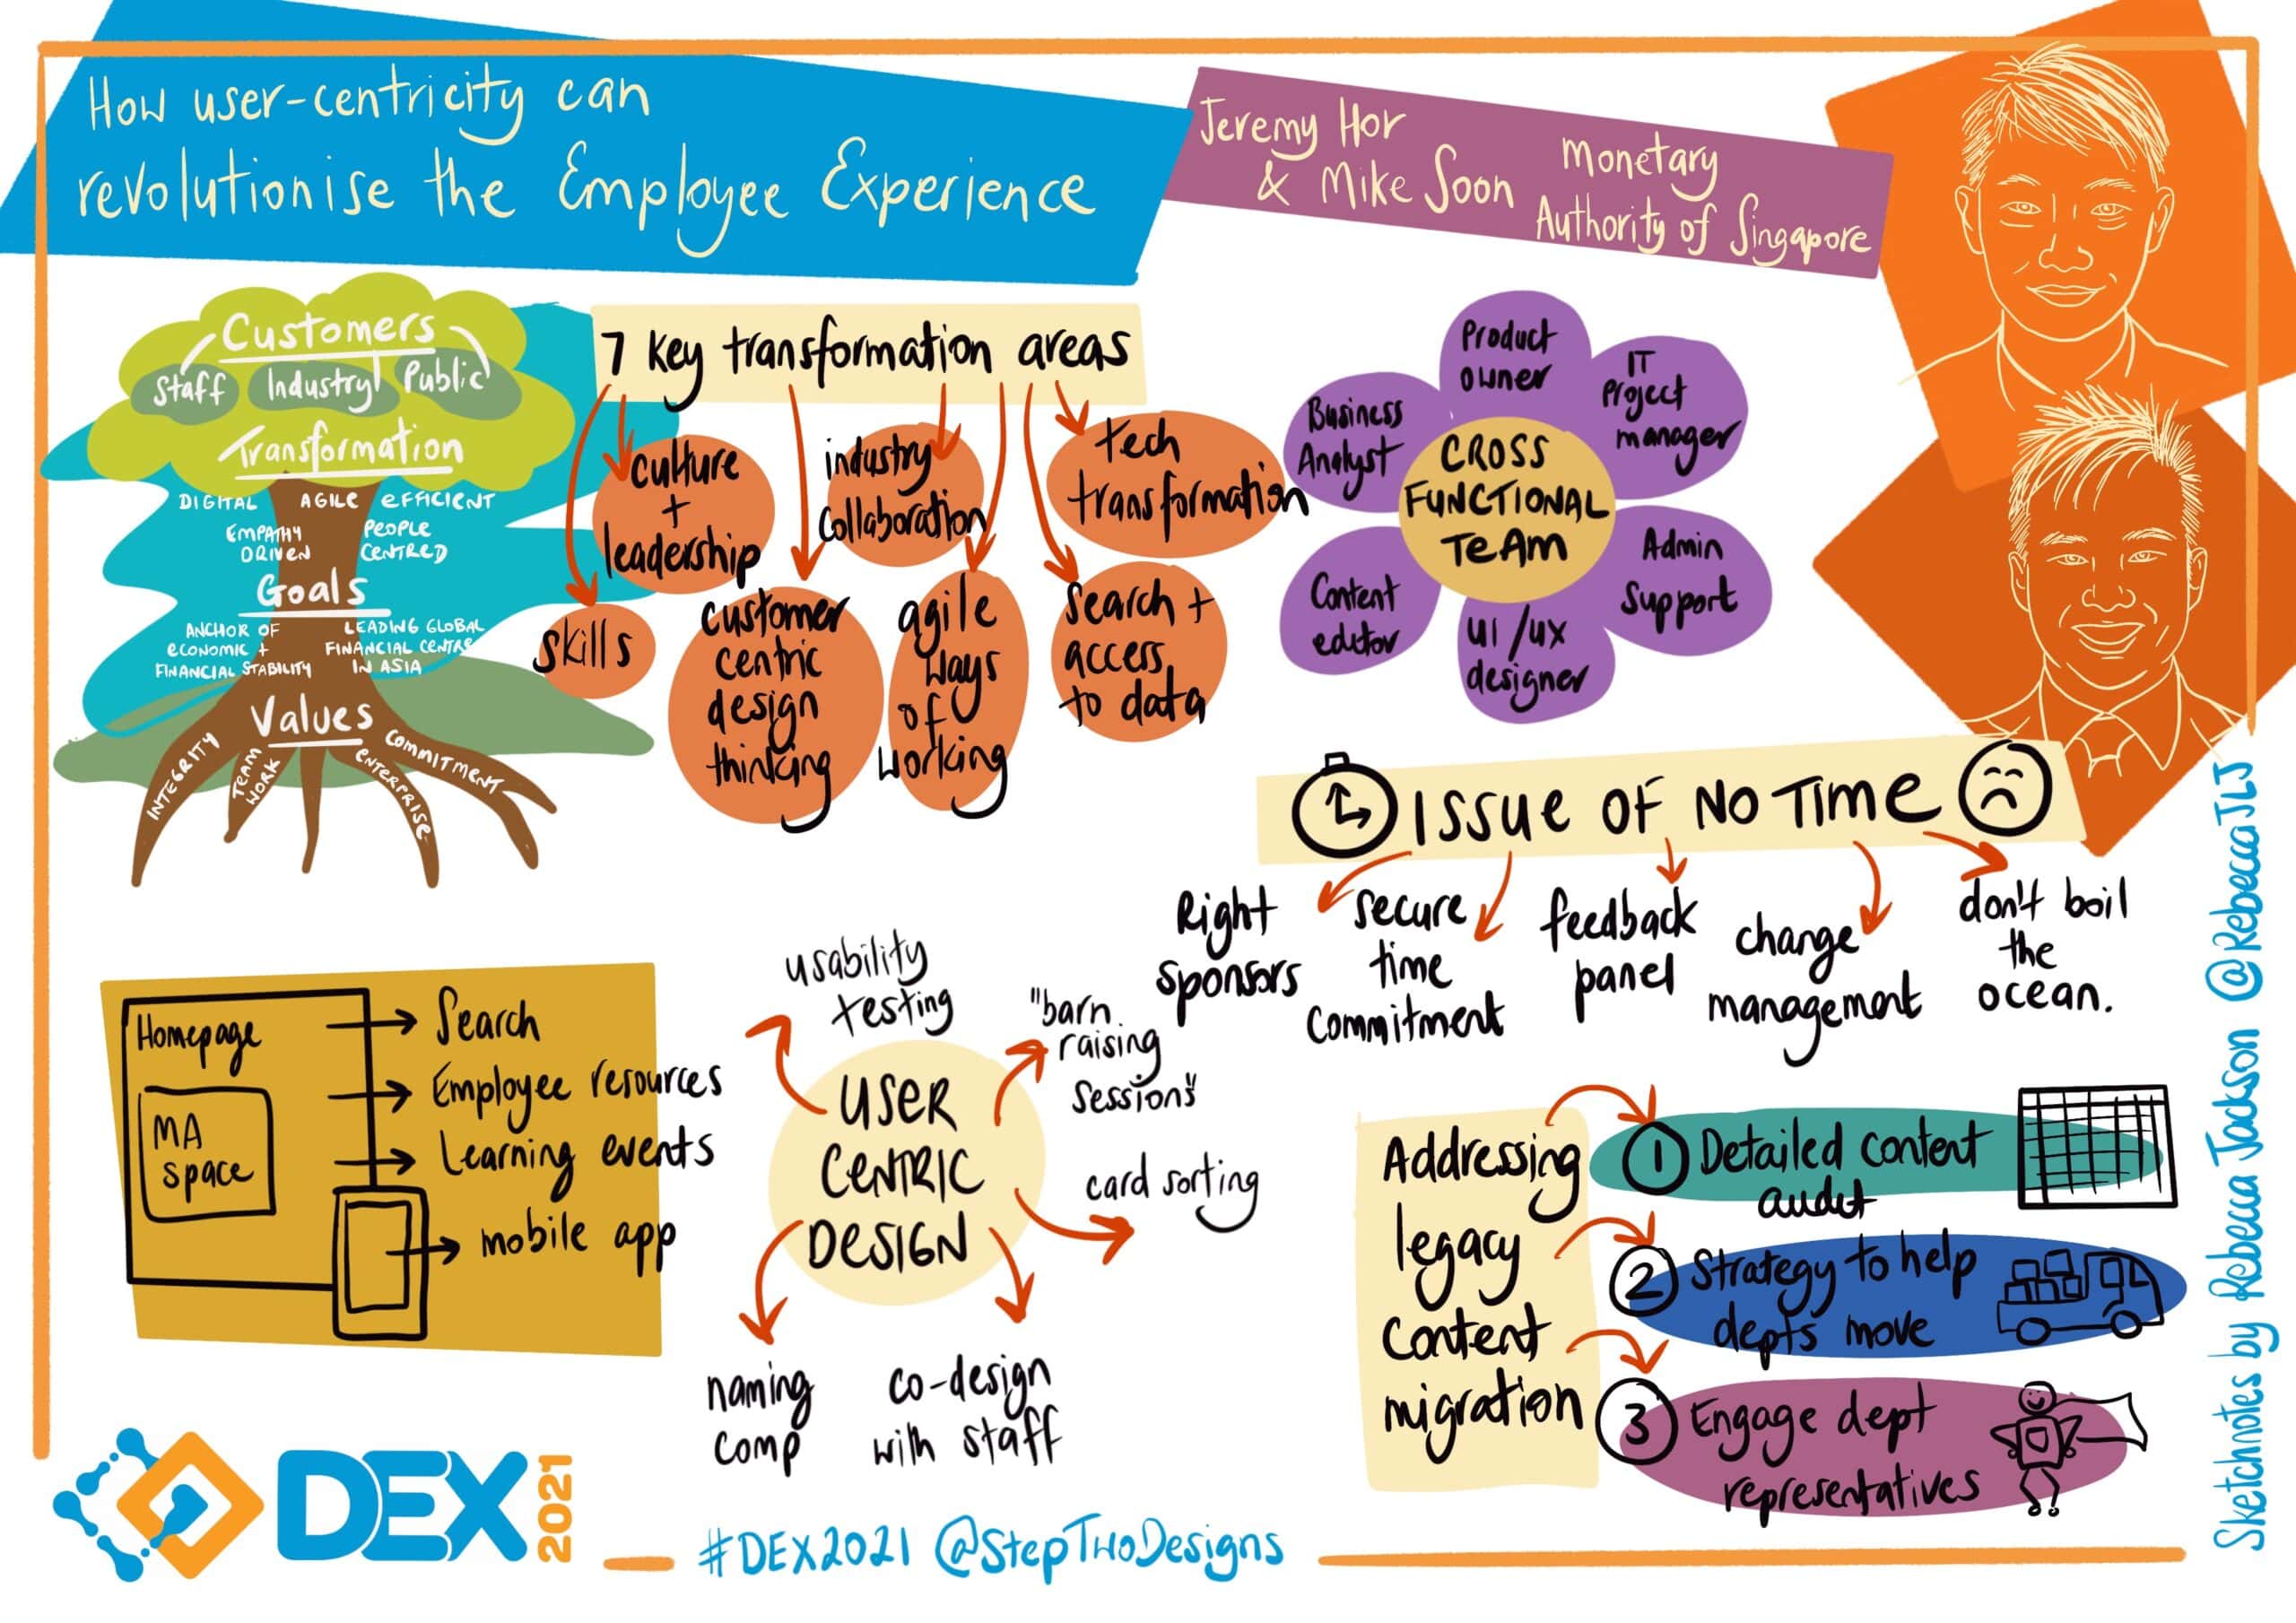 How user-centricity can
revolutionise the Employee Experience
Jeremy Hor
& Mike Soon
Monetary
Authority of Singapore
Customers
Staff
Industry
Public
Transformation
DIGITAL
AGILE
EFFICIENT
EMPATHY
DRIVEN
PEOPLE
CENTRED
Goals
ANCHOR OF
ECONOMIC +
FINANCIAL STABILITY
LEADING GLOBAL
FINANCIAL CENTRE
IN ASIA
Values
INTEGRITY
TEAM
WORK
ENTERPRISE
COMMITMENT
7 key transformation areas
culture
+
leadership
industry
collaboration
tech
transformation
skills
customer
centric
design
thinking
agile
ways
of
working
search +
access
to data
CROSS
FUNCTIONAL
TEAM
Product
owner
IT
Project
manager
Admin
Support
UI/UX
designer
Content
editor
Business
Analyst
ISSUE OF NO TIME
Right
sponsors
secure
time
commitment
feedback
panel
change
management
don't boil
the
ocean.
Homepage
MA
space
Search
Employee resources
Learning events
mobile app
USER
CENTRIC
DESIGN
usability
testing
"barn
raising
sessions"
card sorting
co-design
with staff
naming
comp
Addressing
legacy
content
migration
1 Detailed content
audit
2 Strategy to help
depts move
3 Engage dept
representatives
DEX
2021
#DEX2021 @StepTwoDesigns
Sketchnotes by Rebecca Jackson @RebeccaJLJ